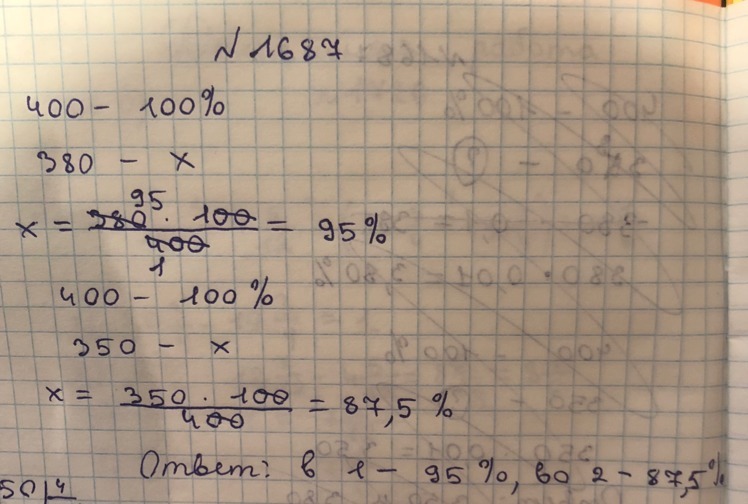 № 1687
400 - 100%
380 - x
95
x = 380 · 100 / 400 = 95%
1
400 - 100%
350 - x
x = 350 · 100 / 400 = 87,5 %
Ответ: в 1 - 95%, во 2 - 87,5%
50 4